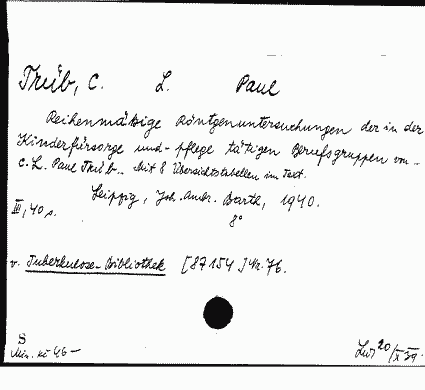 Trüb, C. L. Paul
Reihenmäßige Röntgenuntersuchungen der in der
Kinderfürsorge und -pflege tätigen Berufsgruppen von
C. L. Paul Trüb. Mit 8 Übersichtstabellen im Text.
Leipzig, Joh. Ambr. Barth, 1940.
III, 40 s. 8°
v. Tuberkulose-Bibliothek [87154] Nr. 76.
S
20/X 39.